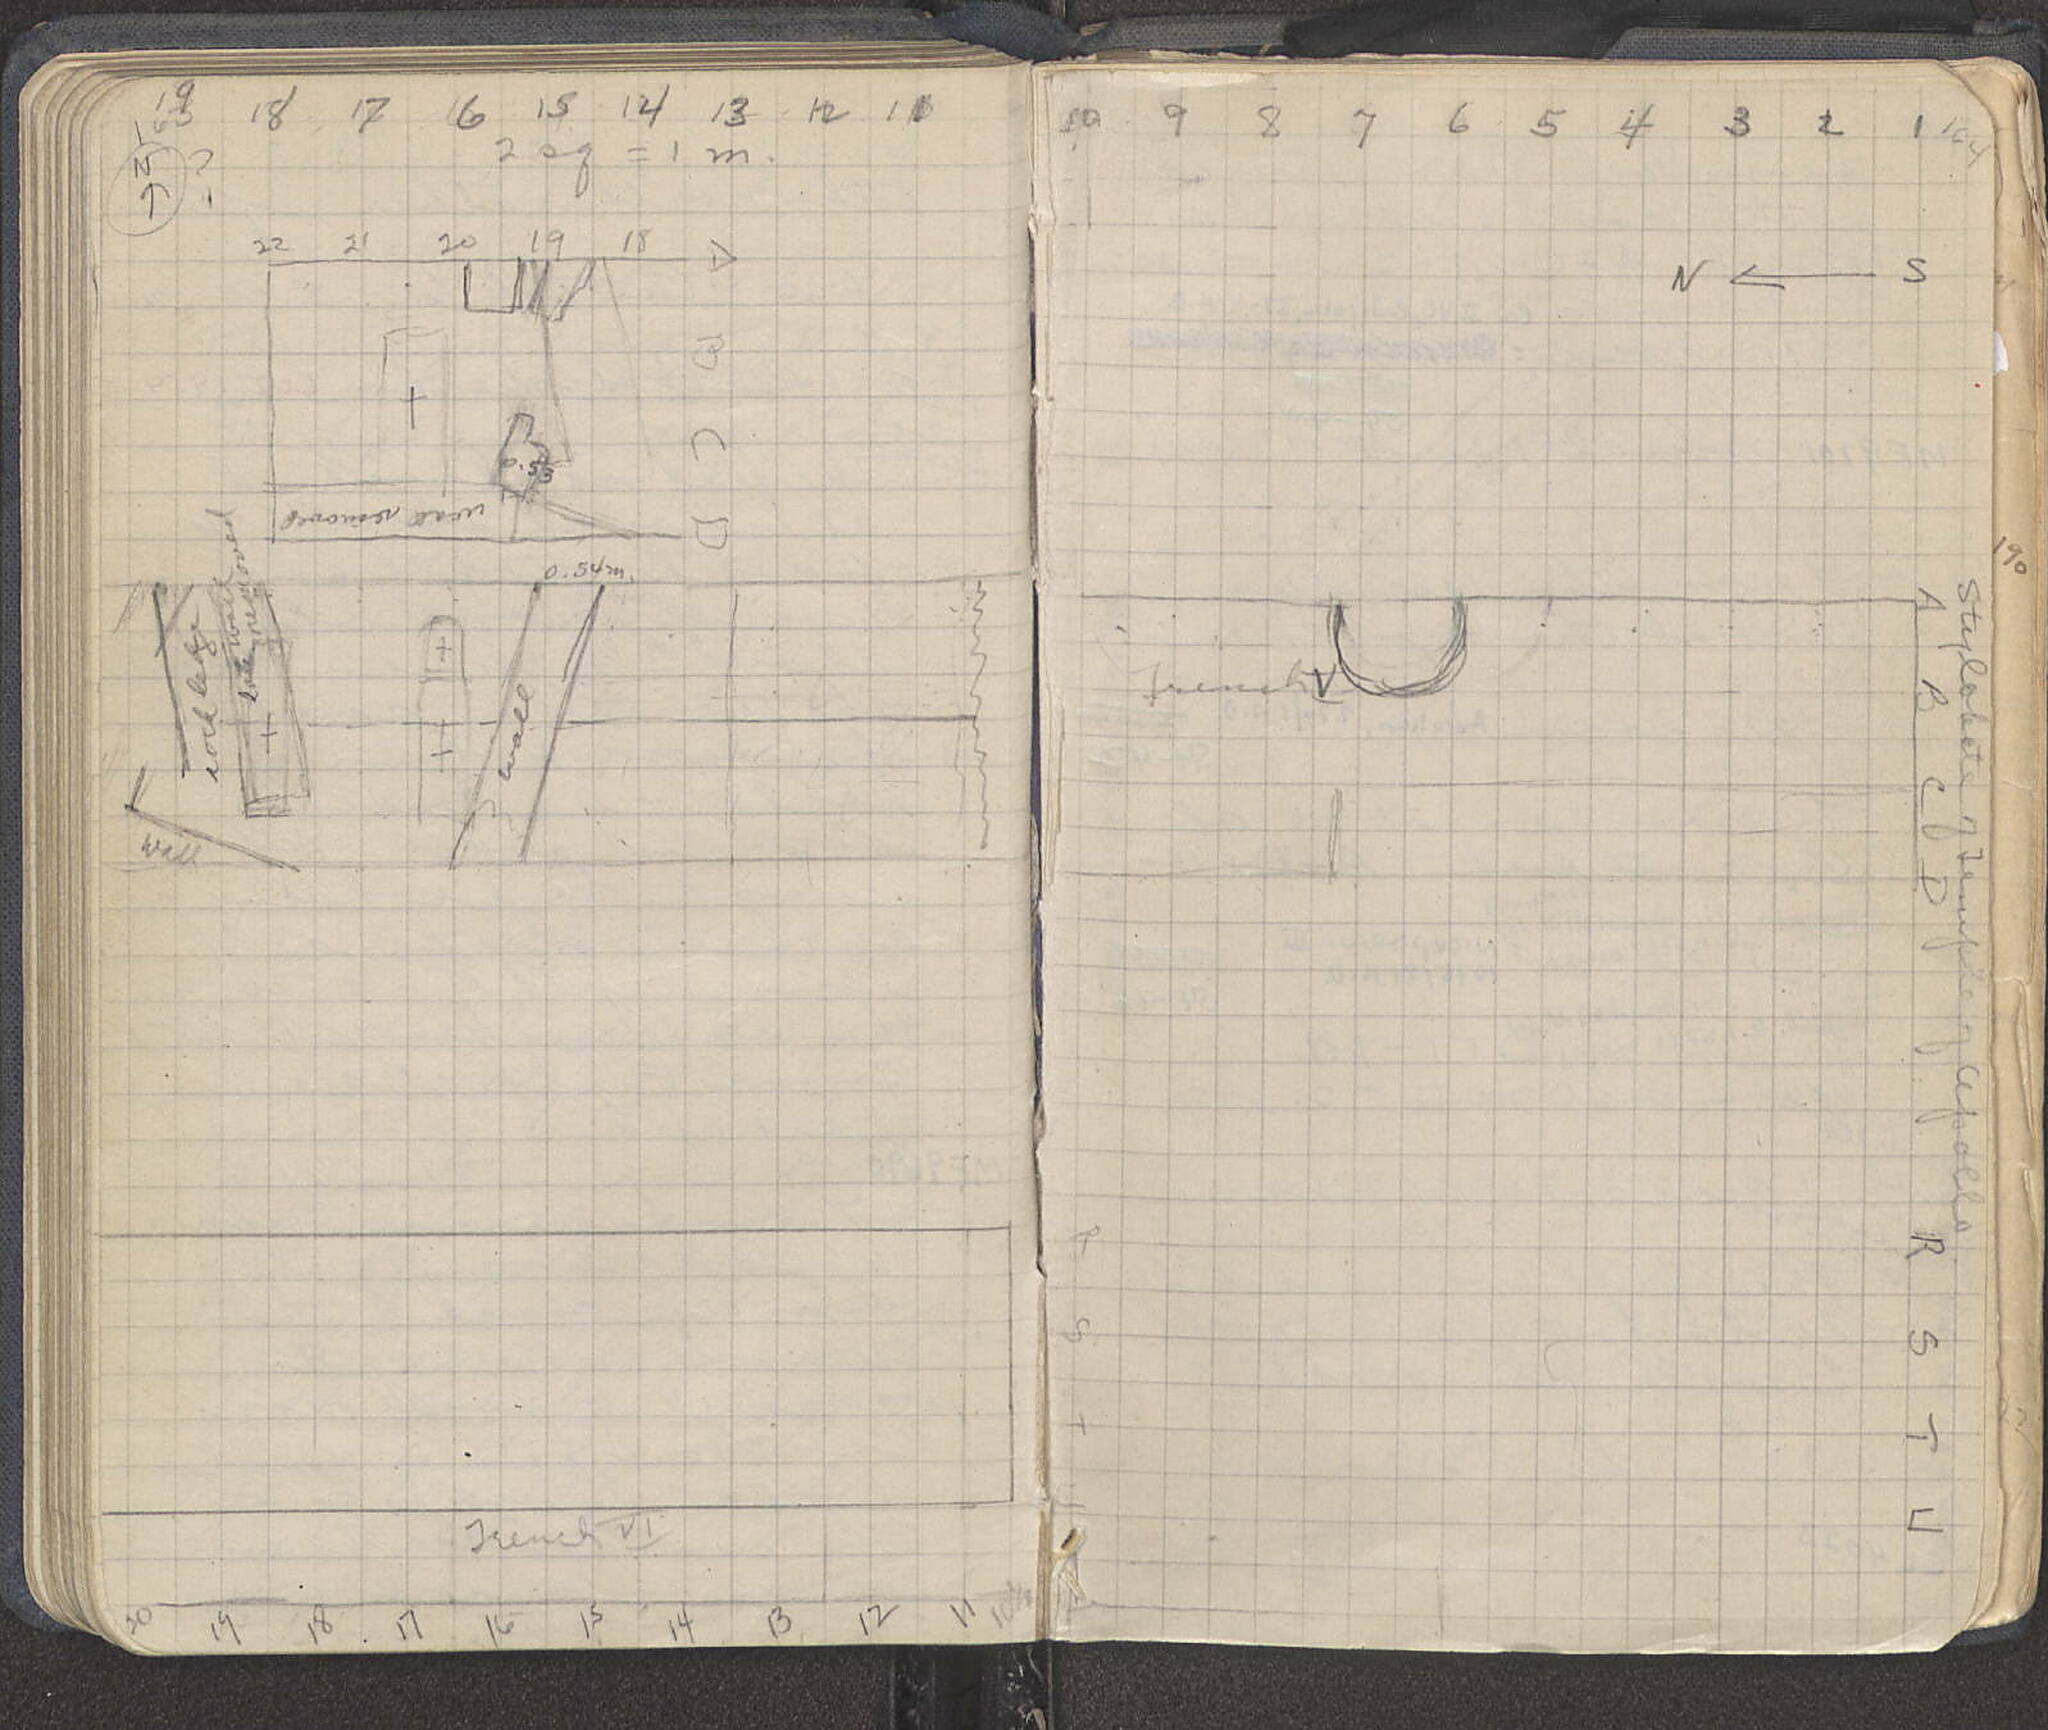 19 18 17 16 15 14 13 12 11
163
N ?
2 sq = 1 m.
22 21 20 19 18 A
B
C
0.55
D
wall removed
0.54 m.
rock ledge
late wall removed
wall
wall
Trench VI
20 19 18 17 16 15 14 13 12 11 10
10 9 8 7 6 5 4 3 2 1 164
N S
190
Stylobate of Temple of Apollo
A
B
C
D
Trench V
R R
S S
T T
U